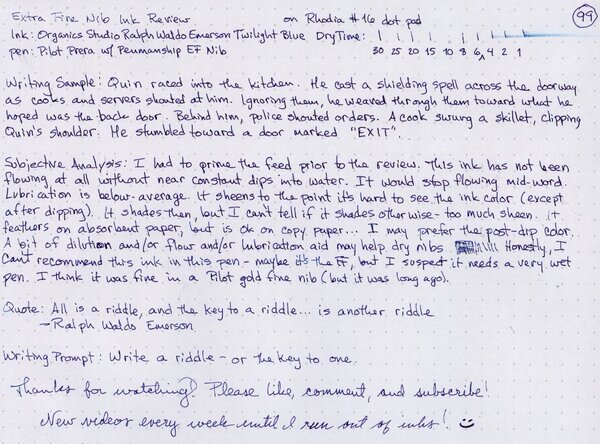 Extra Fine Nib Ink Review on Rhodia #16 dot pad 99
Ink: Organics Studio Ralph Waldo Emerson Twilight Blue Dry Time:
pen: Pilot Prera w/ Penmanship EF Nib 30 25 20 15 10 8 6 4 2 1
Writing Sample: Quin raced into the kitchen. He cast a shielding spell across the doorway
as cooks and servers shouted at him. Ignoring them, he weaved through them toward what he
hoped was the back door. Behind him, police shouted orders. A cook swung a skillet, clipping
Quin's shoulder. He stumbled toward a door marked "EXIT".
Subjective Analysis: I had to prime the feed prior to the review. This ink has not been
flowing at all without near constant dips into water. It would stop flowing mid-word.
Lubrication is below-average. It sheens to the point it's hard to see the ink color (except
after dipping). It shades then, but I can't tell if it shades otherwise - too much sheen. It
feathers on absorbent paper, but is ok on copy paper... I may prefer the post-dip color.
A bit of dilution and/or flow and/or lubrication aid may help dry nibs Honestly, I
can't recommend this ink in this pen - maybe it's the EF, but I suspect it needs a very wet
pen. I think it was fine in a Pilot gold fine nib (but it was long ago).
Quote: All is a riddle, and the key to a riddle... is another riddle
- Ralph Waldo Emerson
Writing Prompt: Write a riddle - or the key to one.
Thanks for watching! Please like, comment, and subscribe!
New videos every week until I run out of inks!